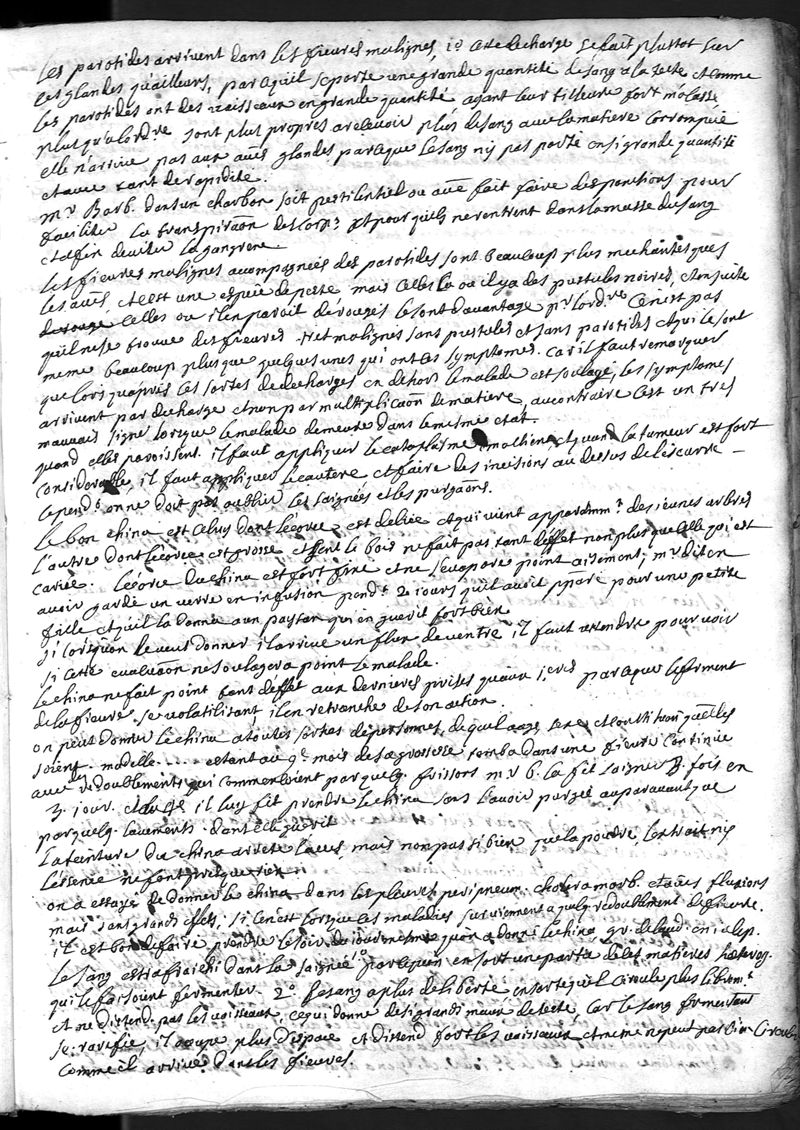 Les parotides arrivent dans les fievres malignes, 1° cette decharge se fait plustot sur
les glandes qu'ailleurs, parcequ'il se porte une grande quantité de sang a la teste et comme
les parotides ont des vaisseaux en grande quantité ayant leur tissure fort molasse
plus qu'a lord.re sont plus propres a recevoir plus de sang avec la matiere corrompüe
elle n'arrive pas aux aũes glandes parceque le sang n'y est pas porté en si grande quantité
et avec tant de rapidité.
Mr. Barb. dans un charbon soit pestilentiel ou aũe fait faire des ponctions pour
faciliter la transpiraõn des corp.s et pour qu'ils ne rentrent dans la masse du sang
et afin deviter la gangrene
Les fievres malignes acompagnées des parotides sont beaucoup plus mechantes que
les aũes, et c'est une espece de peste mais celles la ou il y a des pustules noires, et ensuite
celles ou il en paroit de rouges le sont davantage pr. lord.re Ce n'est pas
qu'il ne se trouve des fievres malignes sans pustules et sans parotides et qui le sont
meme beaucoup plus que quelques unes qui ont ces symptomes. car il faut remarquer
que lors qu'apres les sortes de decharges en dehors le malade est soulagé, les symptomes
arrivent par decharge et non par multiplicaõn de matiere, au contraire c'est un tres
mauvais signe lorsque le malade demeure dans le mesme etat.
quand elles paroissent il faut appliquer le cataplasme emollient, et quand la tumeur est fort
considerable, il faut appliquer le cautere et faire des incisions au dessus de l'escarre
cepend.t on ne doit pas oublier les saignées et les purgaõns.
Le bon china est celuy dont lecorce est deliée et qui vient apparemm.t des jeunes arbres
l'autre dont lécorce est grosse et sent le bois ne fait pas tant deffet non plus que celle qui est
cariée. Lécorce du china est fort fine et ne sevapore point aisement; mr. dit en
avoir gardé un verre en infusion pend.t 20 jours qu'il avoit pparé pour une petite
fille et qu'il la donna a un paysan qui en guerit fort bien
Si lorsqu'on le veut donner il arrive un flux de ventre il faut attendre pour voir
si cette evacuaõn ne soulagera point le malade.
Le china ne fait point tant deffet aux dernieres prises qu'aux 1.eres parceque le ferment
de la fievre se volatilisant, il en retranche de son action.
on peut donner le china a toutes sortes de personnes, de quel aage, sexe et constitution qu'elles
soient. madelle .... estant au 9e. mois de sa grossesse tomba dans une fievre continue
avec des redoublements qui commencoient par quelq. frissons mr b. la fit saigner 3. fois en
3. jour. il luy fit prendre le china sans l'avoir purgée auparavant que
par quelq. lavements dont elle guerit
La teinture du china arrete l'aces, mais non pas si bien que la poudre, l'extrait ny
l'essence ne font presque rien
on a essayé de donner le china dans les pleures. peripneum. cholera morb. et aũes fluxions
mais sans grands effets, si ce n'est lorsque ces maladies surviennent a quelq. redoublement de fievre.
il est bon de faire prendre le soir du jour mesme qu'on a donné le china gr. de laud. en iulep.
Le sang est rafraichi dans la saignée 1° parcequ'on en sort une partie de les matieres heterog.
qui le faisoient fermenter. 2° le sang a plus de liberté en sorte qu'il circule plus librem.t
et ne distend pas les vaisseaux, ce qui donne des grands maux de teste, car le sang fermentant
se rarefie, il occupe plus d'espace et distend fort les vaisseaux et mesme ne peut pas bien circuler
comme il arrive dans les fievres